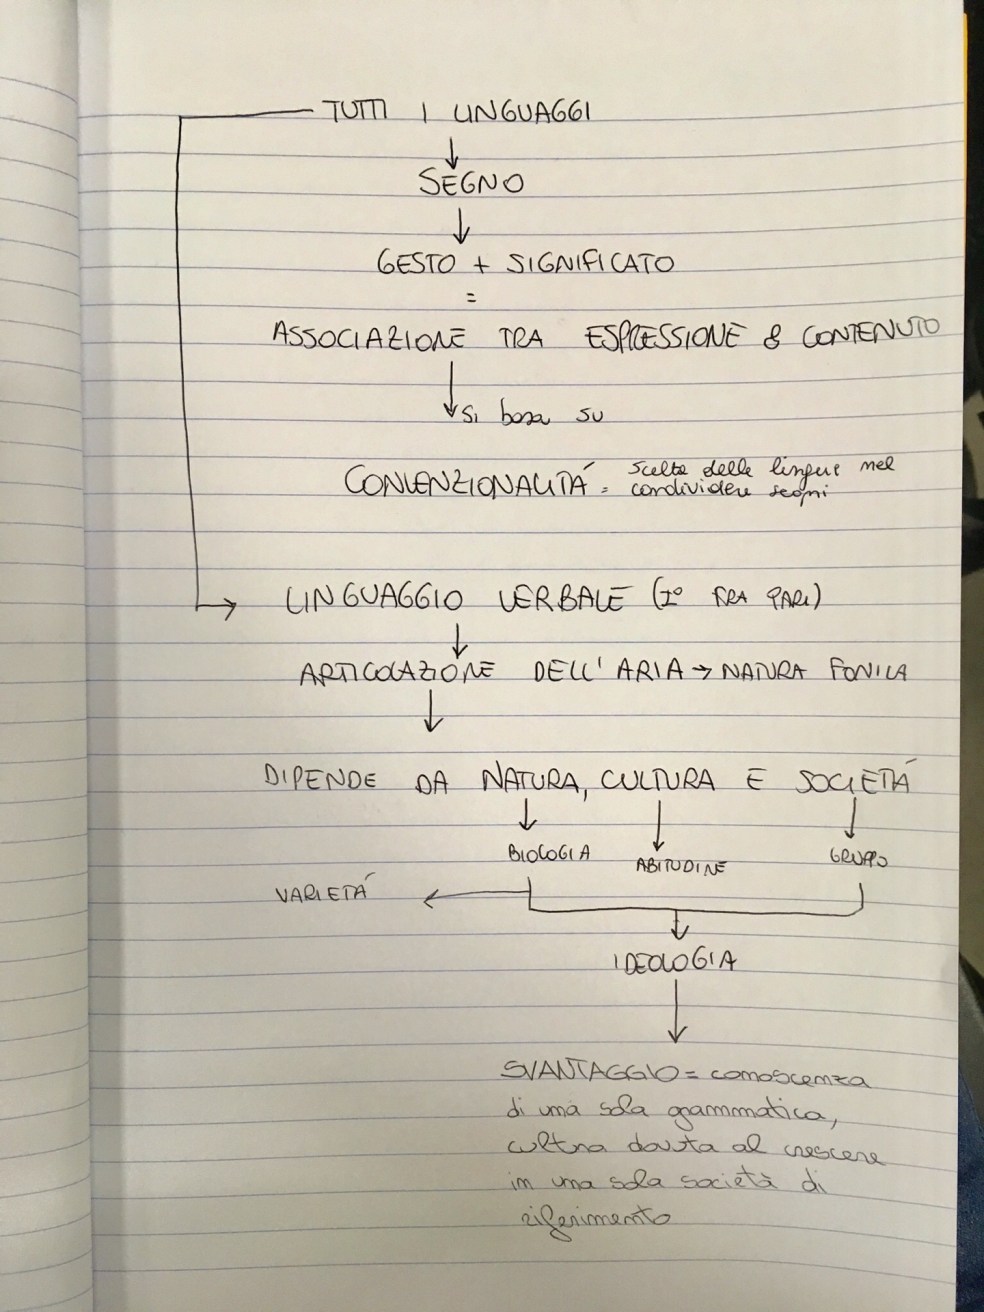 TUTTI I LINGUAGGI
↓
SEGNO
↓
GESTO + SIGNIFICATO
=
ASSOCIAZIONE TRA ESPRESSIONE & CONTENUTO
↓ si basa su
CONVENZIONALITÁ = scelta delle lingue nel
condividere segni
→ LINGUAGGIO VERBALE (I° FRA PARI)
↓
ARTICOLAZIONE DELL'ARIA → NATURA FONICA
↓
DIPENDE DA NATURA, CULTURA E SOCIETÁ
↓ ↓ ↓
BIOLOGIA ABITUDINE GRUPPO
VARIETÁ ←
↓
IDEOLOGIA
↓
SVANTAGGIO = conoscenza
di una sola grammatica,
cultura dovuta al crescere
in una sola società di
riferimento